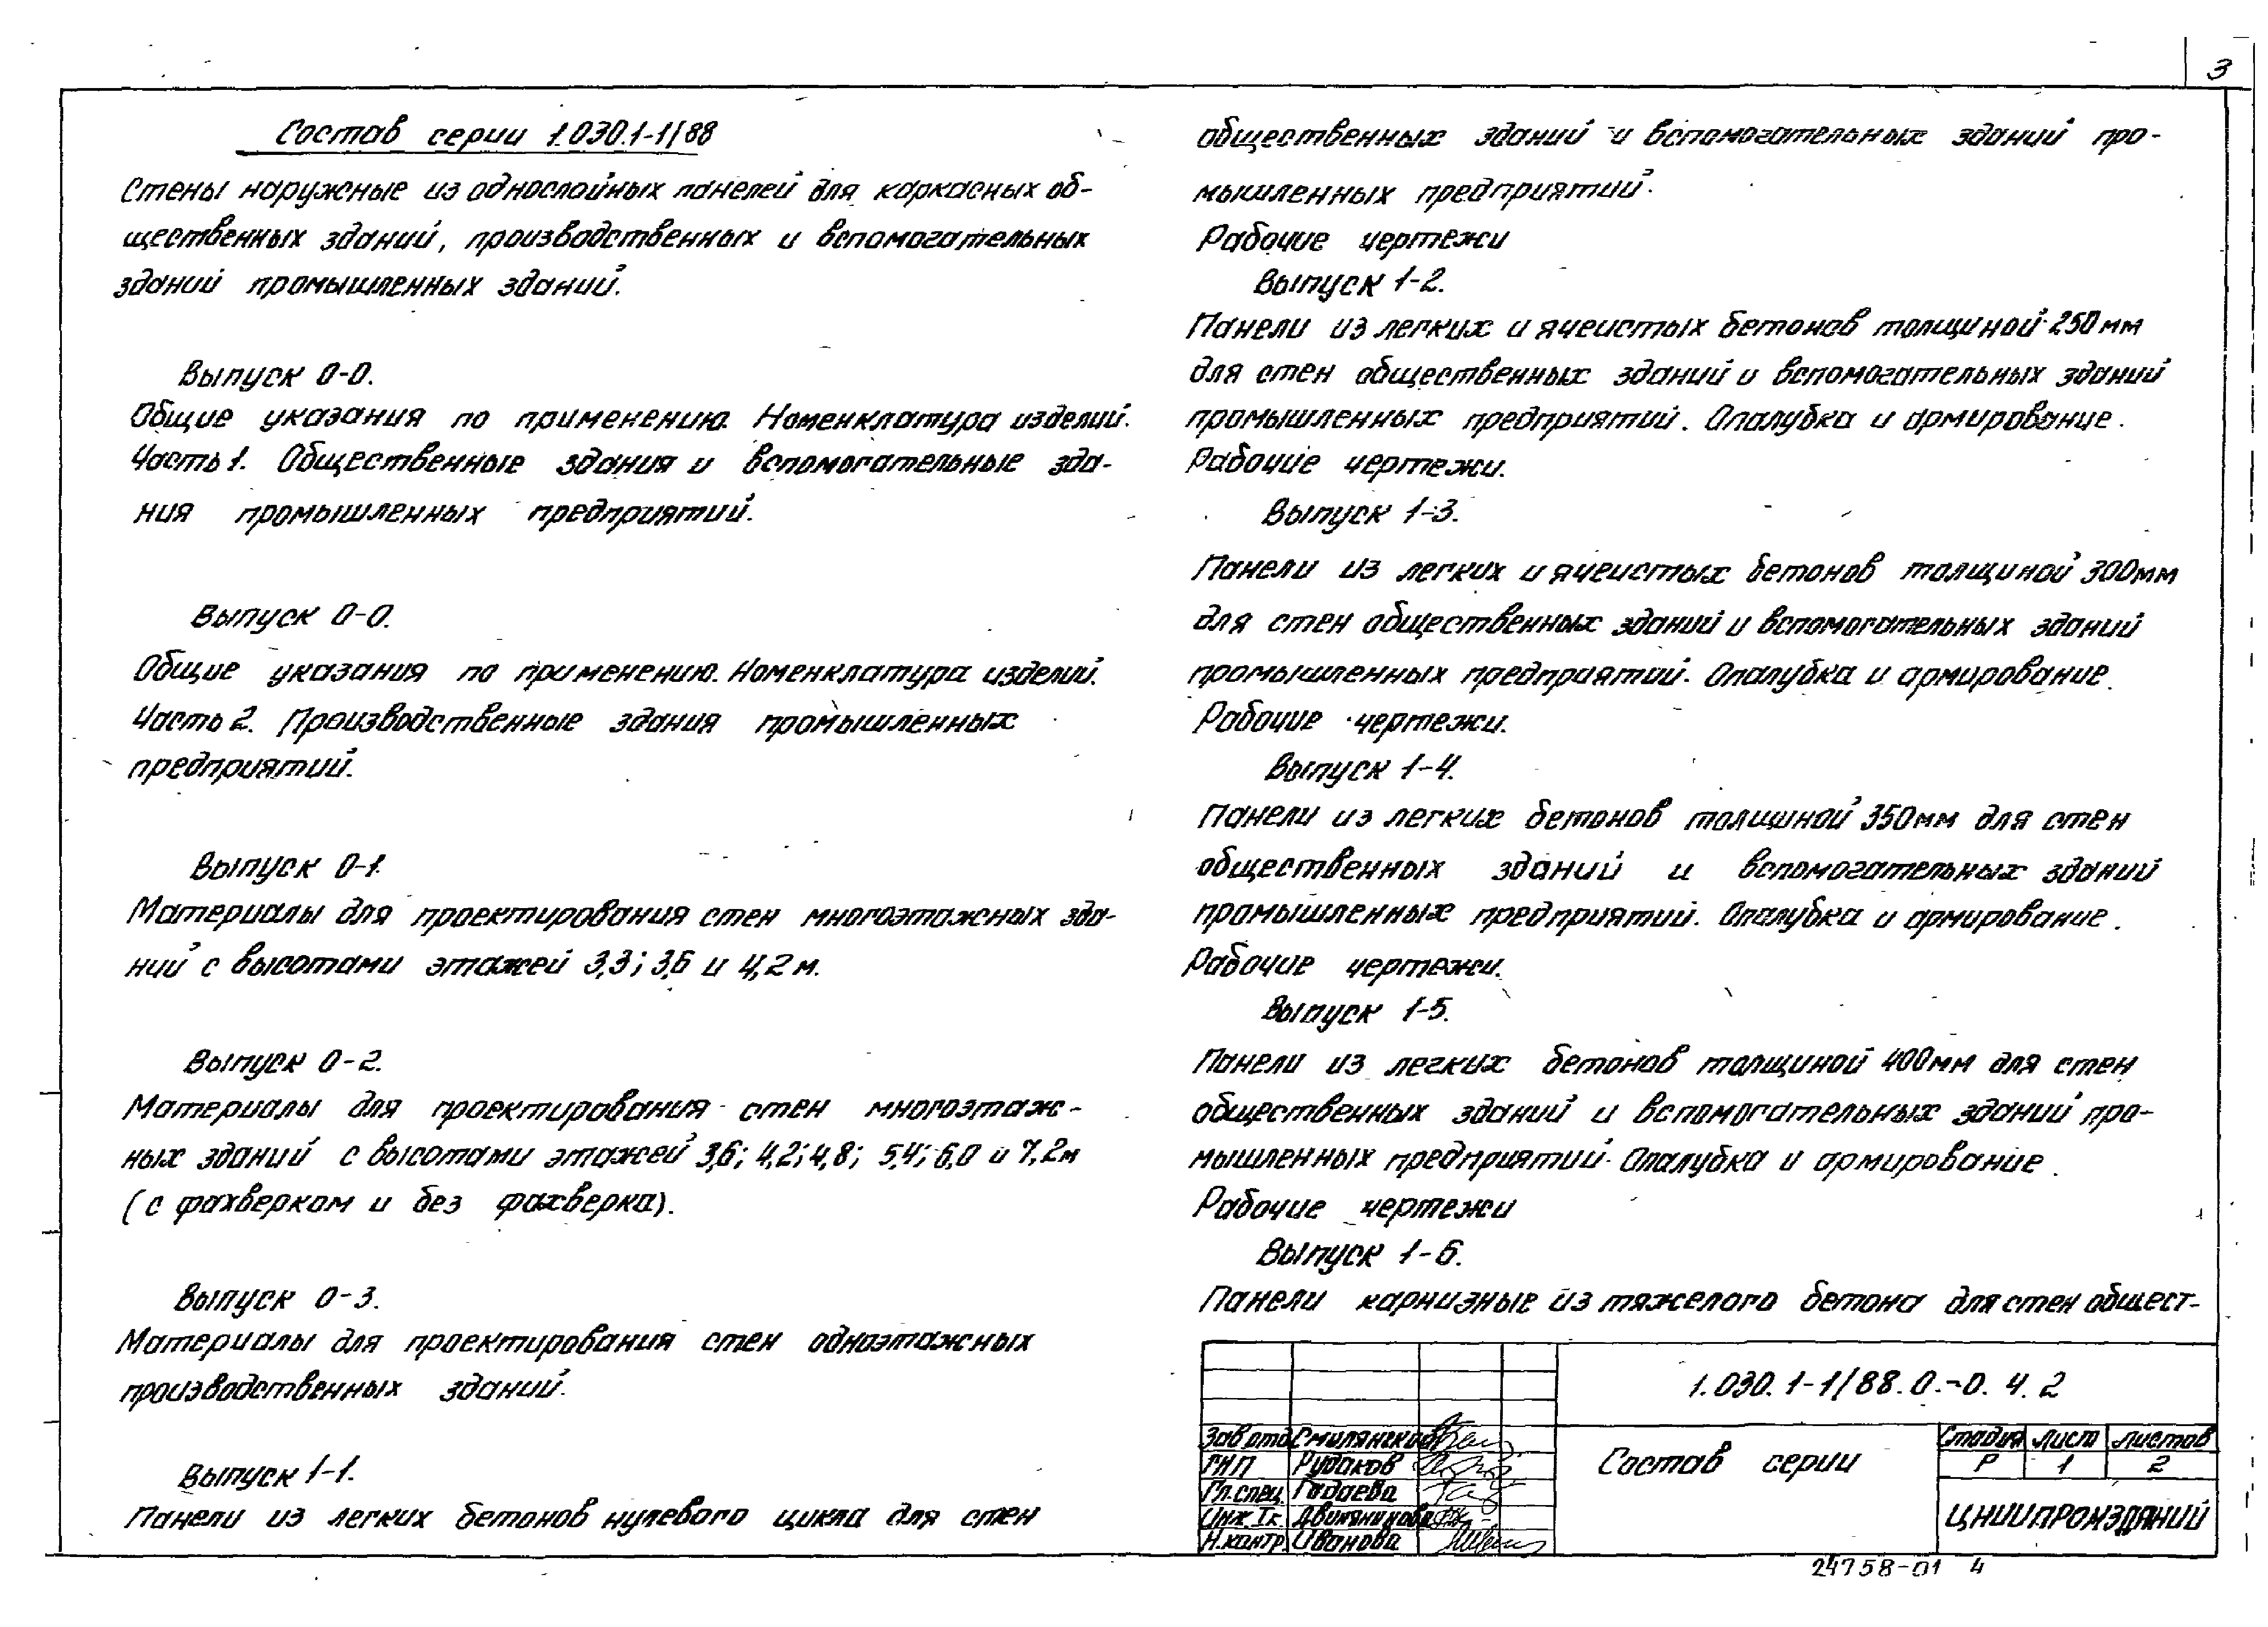 3
Состав серии 1.030.1-1/88
Стены наружные из однослойных панелей для каркасных об-
щественных зданий, производственных и вспомогательных
зданий промышленных зданий.
Выпуск 0-0.
Общие указания по применению. Номенклатура изделий.
Часть 1. Общественные здания и вспомогательные зда-
ния промышленных предприятий.
Выпуск 0-0.
Общие указания по применению. Номенклатура изделий.
Часть 2. Производственные здания промышленных
предприятий.
Выпуск 0-1.
Материалы для проектирования стен многоэтажных зда-
ний с высотами этажей 3,3; 3,6 и 4,2 м.
Выпуск 0-2.
Материалы для проектирования стен многоэтаж-
ных зданий с высотами этажей 3,6; 4,2; 4,8; 5,4; 6,0 и 7,2м
(с фахверком и без фахверка).
Выпуск 0-3.
Материалы для проектирования стен одноэтажных
производственных зданий.
Выпуск 1-1.
Панели из легких бетонов нулевого цикла для стен
общественных зданий и вспомогательных зданий про-
мышленных предприятий.
Рабочие чертежи
Выпуск 1-2.
Панели из легких и ячеистых бетонов толщиной 250мм
для стен общественных зданий и вспомогательных зданий
промышленных предприятий. Опалубка и армирование.
Рабочие чертежи.
Выпуск 1-3.
Панели из легких и ячеистых бетонов толщиной 300мм
для стен общественных зданий и вспомогательных зданий
промышленных предприятий. Опалубка и армирование.
Рабочие чертежи.
Выпуск 1-4.
Панели из легких бетонов толщиной 350мм для стен
общественных зданий и вспомогательных зданий
промышленных предприятий. Опалубка и армирование.
Рабочие чертежи.
Выпуск 1-5.
Панели из легких бетонов толщиной 400мм для стен
общественных зданий и вспомогательных зданий про-
мышленных предприятий. Опалубка и армирование.
Рабочие чертежи
Выпуск 1-6.
Панели карнизные из тяжелого бетона для стен общест-
1.030.1-1/88.0.-0.4.2
Зав отд Смилянский
ГИП Рудаков
Гл.спец. Гадаева
Инж. Iк.
Н.контр. Иванова
Состав серии
Стадия Лист Листов
Р 1 2
ЦНИИПРОМЗДАНИЙ
24758-01 4